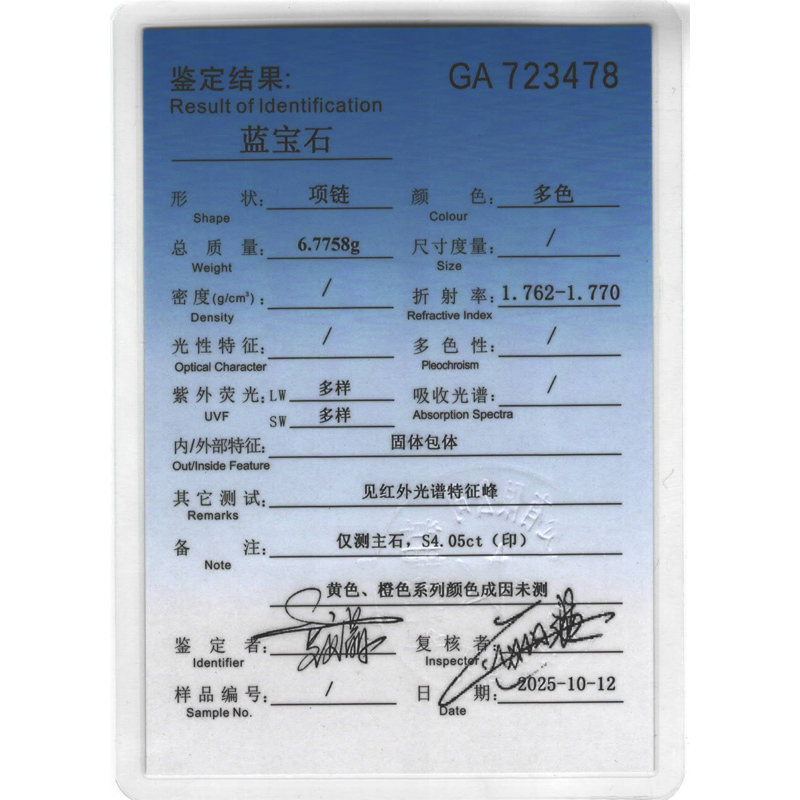 鉴定结果: GA 723478
Result of Identification
蓝宝石
形 状: 项链 颜 色: 多色
Shape Colour
总 质 量: 6.7758g 尺寸度量: /
Weight Size
密 度(g/cm³): / 折 射 率: 1.762-1.770
Density Refractive Index
光性特征: / 多 色 性: /
Optical Character Pleochroism
紫外荧光: LW 多样 吸收光谱: /
UVF SW 多样 Absorption Spectra
内/外部特征: 固体包体
Out/Inside Feature
其它测试: 见红外光谱特征峰
Remarks
备 注: 仅测主石，S4.05ct（印）
Note
黄色、橙色系列颜色成因未测
鉴 定 者: 复 核 者:
Identifier Inspector
样品编号: / 日 期: 2025-10-12
Sample No. Date